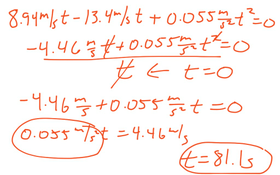 8.94m/s t - 13.4m/s t + 0.055 m/s² t² = 0
-4.46 m/s t + 0.055 m/s² t² = 0
t ← t=0
-4.46 m/s + 0.055 m/s² t = 0
0.055 m/s² t = 4.46 m/s
t = 81.1s